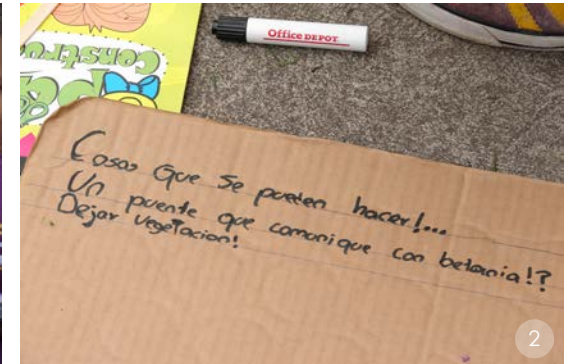 Office DEPOT
Constru
Cosas Que Se pueden hacer!...
Un puente que comunique con betania!?
Dejar vegetacion!
2